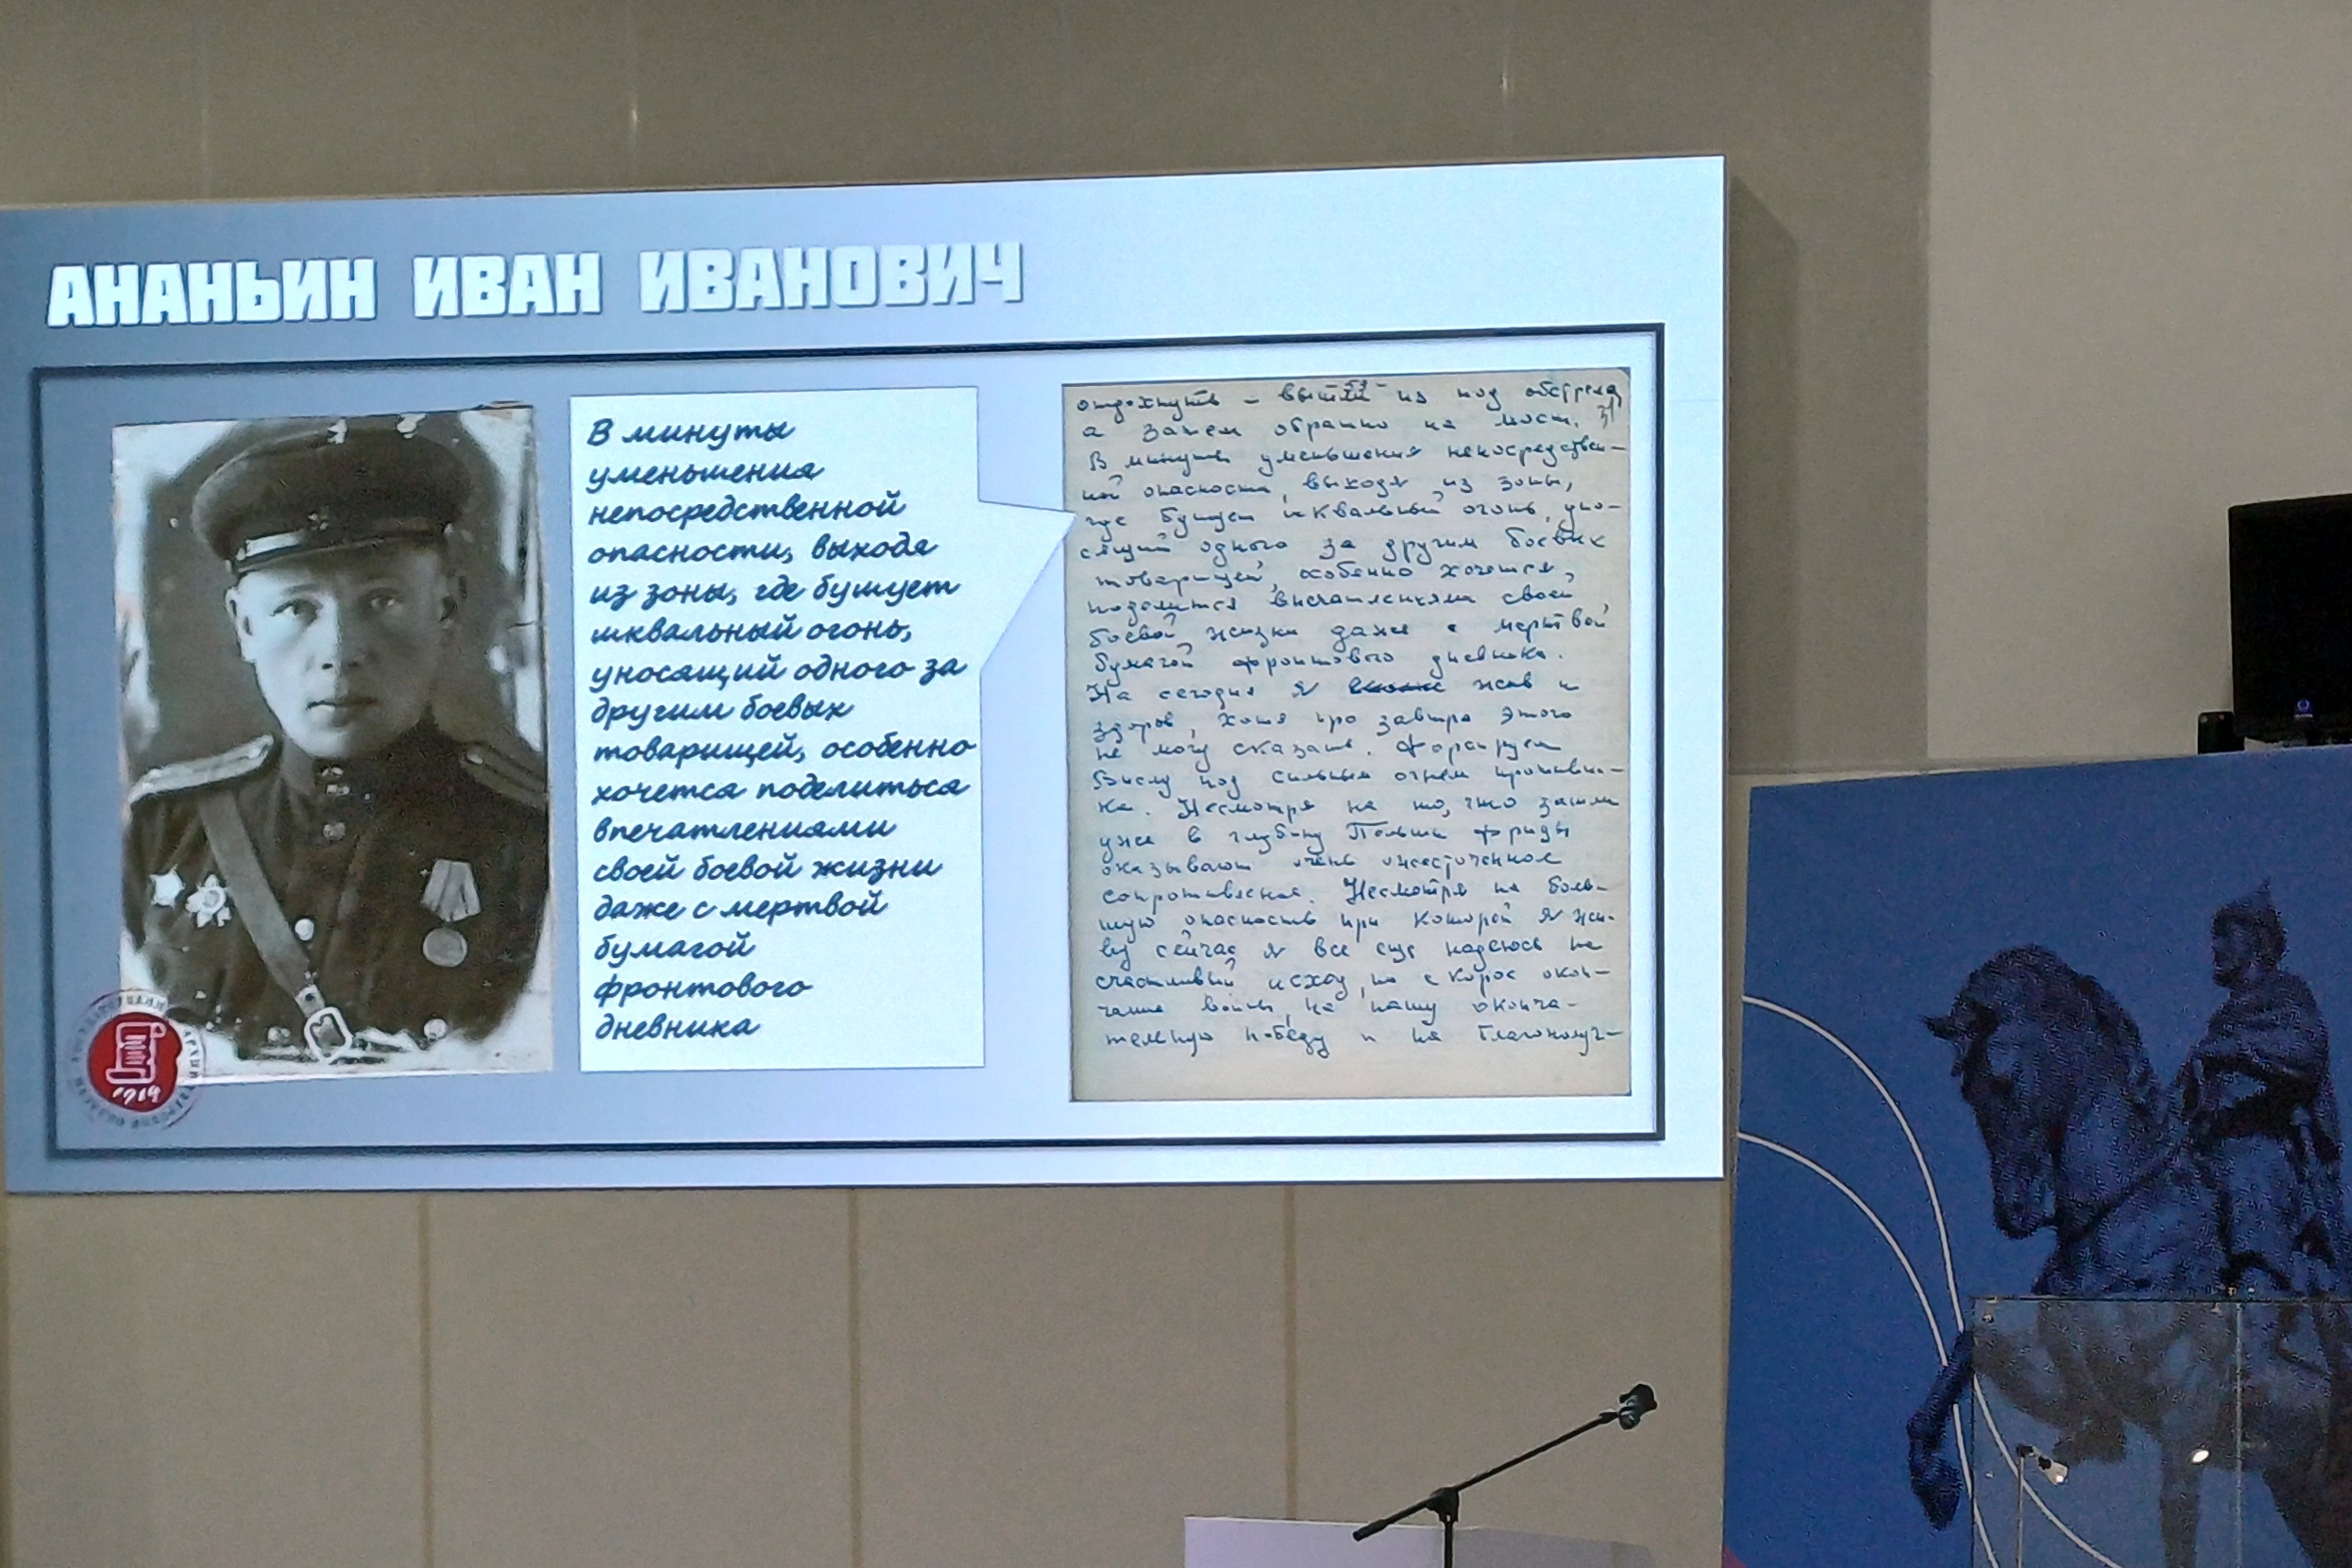 АНАНЬИН ИВАН ИВАНОВИЧ
В минуты
уменьшения
непосредственной
опасности, выходя
из зоны, где бушует
шквальный огонь,
уносящий одного за
другим боевых
товарищей, особенно
хочется поделиться
впечатлениями
своей боевой жизни
даже с мертвой
бумагой
фронтового
дневника
отдохнуть – выйти из под обстрела,
а затем обратно на мост. 31
В минуты уменьшения непосредствен-
ной опасности, выходя из зоны,
где бушует шквальный огонь, уно-
сящий одного за другим боевых
товарищей, особенно хочется
поделится впечатлениями своей
боевой жизни даже с мертвой
бумагой фронтового дневника.
На сегодня я жив и
здоров, хотя про завтра этого
не могу сказать. Форсируем
Вислу под сильным огнем противни-
ка. Несмотря на то, что зашли
уже в глубину Польши фрицы
оказывают очень ожесточенное
сопротивление. Несмотря на боль-
шую опасность при которой я жи-
ву сейчас я все еще надеюсь на
счастливый исход, на скорое окон-
чание войны, на нашу оконча-
тельную победу и на благополуч-
1919